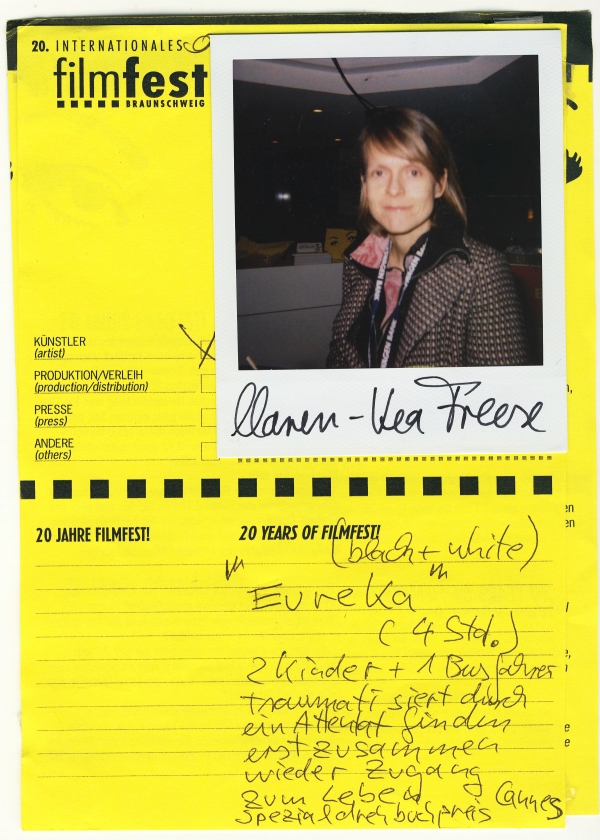 20. INTERNATIONALES
filmfest
BRAUNSCHWEIG
KÜNSTLER
(artist)
PRODUKTION/VERLEIH
(production/distribution)
PRESSE
(press)
ANDERE
(others)
Maren-Kea Freese
20 JAHRE FILMFEST!
20 YEARS OF FILMFEST!
(black + white)
"Eureka"
(4 Std.)
2 Kinder + 1 Busfahrer
traumatisiert durch
ein Attentat finden
erst zusammen
wieder Zugang
zum Leben
Cannes
Spezialdrehbuchpreis